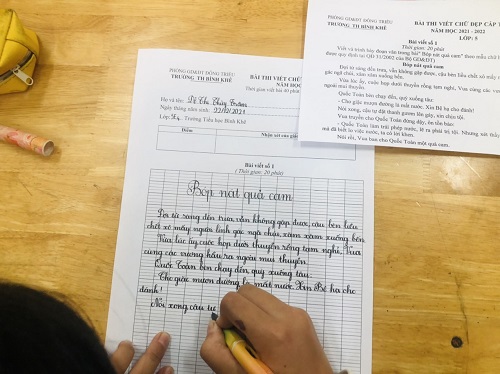 PHÒNG GD&ĐT ĐÔNG TRIỀU
TRƯỜNG TH BÌNH KHÊ
BÀI THI VIẾT CHỮ ĐẸP CẤP
NĂM HỌC 2021 - 2022
LỚP: 5
Bài viết số 1
Thời gian: 20 phút
Viết và trình bày đoạn văn trong bài" Bóp nát quả cam" theo mẫu chữ
được quy định tại QĐ 31/2002 của Bộ GD&ĐT)
Bóp nát quả cam
Đợi từ sáng đến trưa, vẫn không gặp được, cậu bèn liều chết xô mấy
gác ngã chúi, xăm xăm xuống bến.
Vừa lúc ấy, cuộc họp dưới thuyền rồng tạm nghỉ, Vua cùng các vương
ngoài mui thuyền.
Quốc Toản bèn chạy đến, quỳ xuống tâu:
- Cho giặc mượn đường là mất nước. Xin Bệ hạ cho đánh!
Nói xong, cậu tự đặt thanh gươm lên gáy, xin chịu tội.
Vua truyền cho Quốc Toản đứng dậy, ôn tồn bảo:
- Quốc Toản làm trái phép nước, lẽ ra phải trị tội. Nhưng xét thấy
mà đã biết lo việc nước, ta có lời khen.
Nói rồi, Vua ban cho Quốc Toản một quả cam.
PHÒNG GD&ĐT ĐÔNG TRIỀU
TRƯỜNG TH BÌNH KHÊ
BÀI THI VIẾT CHỮ ĐẸP
NĂM HỌC
Họ và tên:
Ngày tháng năm sinh:
Lớp: Trường Tiểu học Bình Khê
Điểm
Nhận xét của giáo
Bài viết số 1
(Thời gian: 20 phút)
Bóp nát quả cam
Đợi từ sáng đến trưa, vẫn không gặp được, cậu bèn liều
chết xô mấy người lính gác ngã chúi, xăm xăm xuống bến.
Vừa lúc ấy, cuộc họp dưới thuyền rồng tạm nghỉ, Vua
cùng các vương hầu ra ngoài mui thuyền.
Quốc Toản bèn chạy đến, quỳ xuống tâu:
Cho giặc mượn đường là mất nước. Xin Bệ hạ cho
đánh!
Nói xong, cậu tự